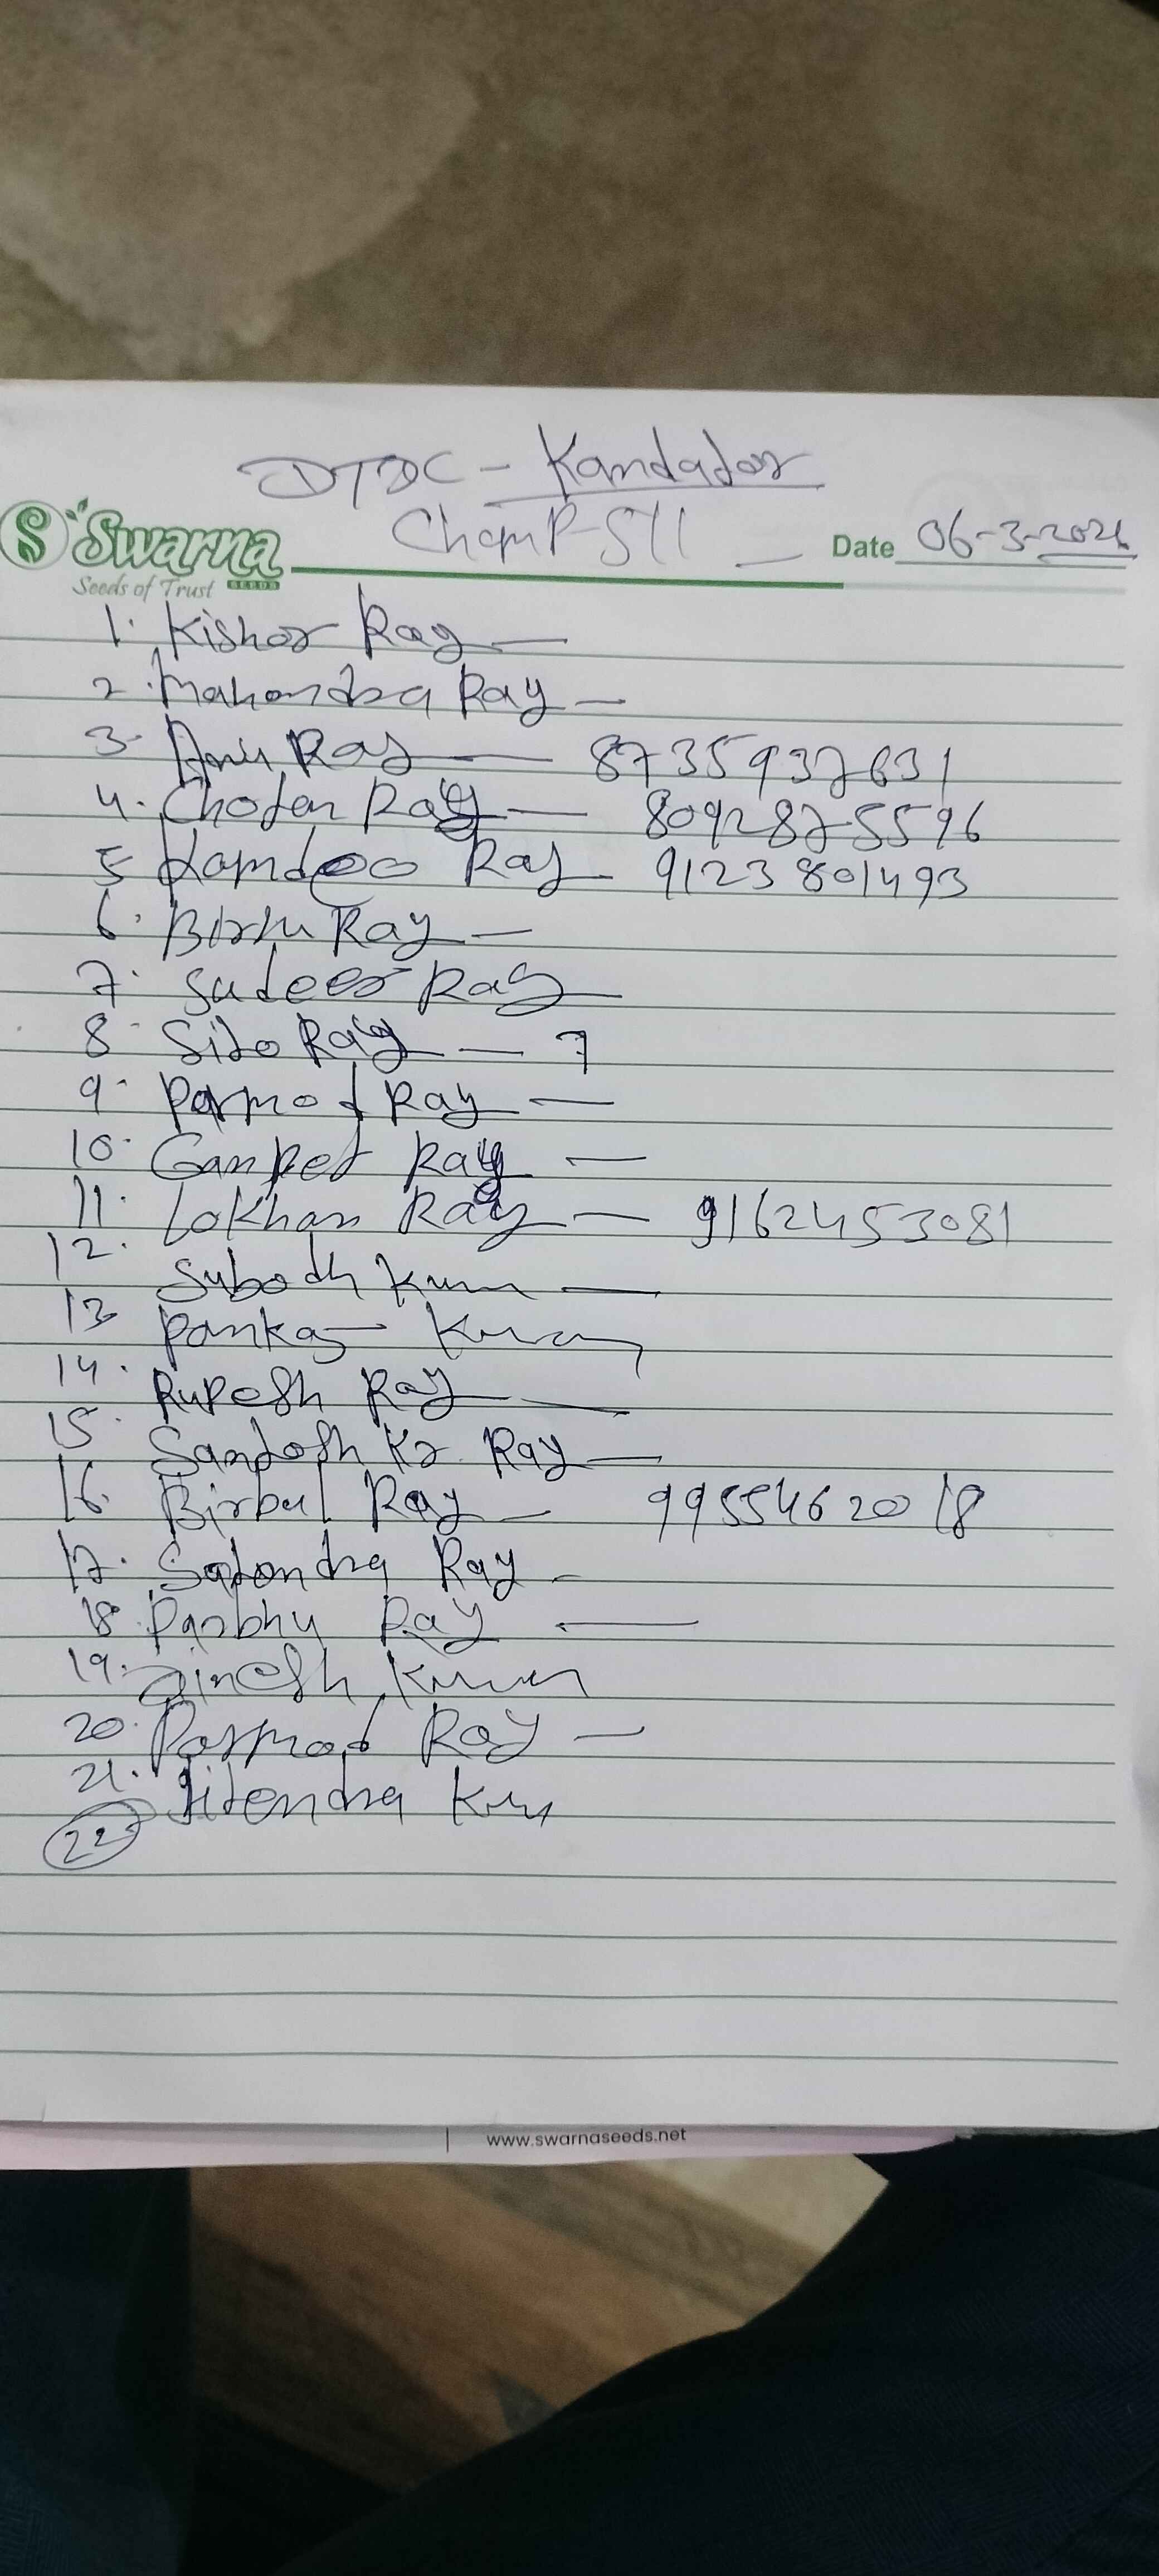 DTDC - Kandador
ChamP-511
Swarna
Seeds of Trust SEEDS
Date 06-3-2026
1. Kishor Ray
2. Mahendra Ray
3. Ray 8735937631
4. Chotan Ray 8092875596
5 Kamdeo Ray 9123801493
6. Ray
7. Sudeer Ray
8. Sito Ray 7
9. Parmod Ray
10. Ganpet Ray
11. Lakhan Ray 9162453081
12. Subodh Kum
13 Pankaj
14. Rupesh Ray
15. Santosh Kr. Ray
16. Birbal Ray 9955462018
17. Satendra Ray
18. Parbhu Ray
19. Dinesh Kumar
20. Parmod Ray
21. Jitendra
22.
www.swarnaseeds.net